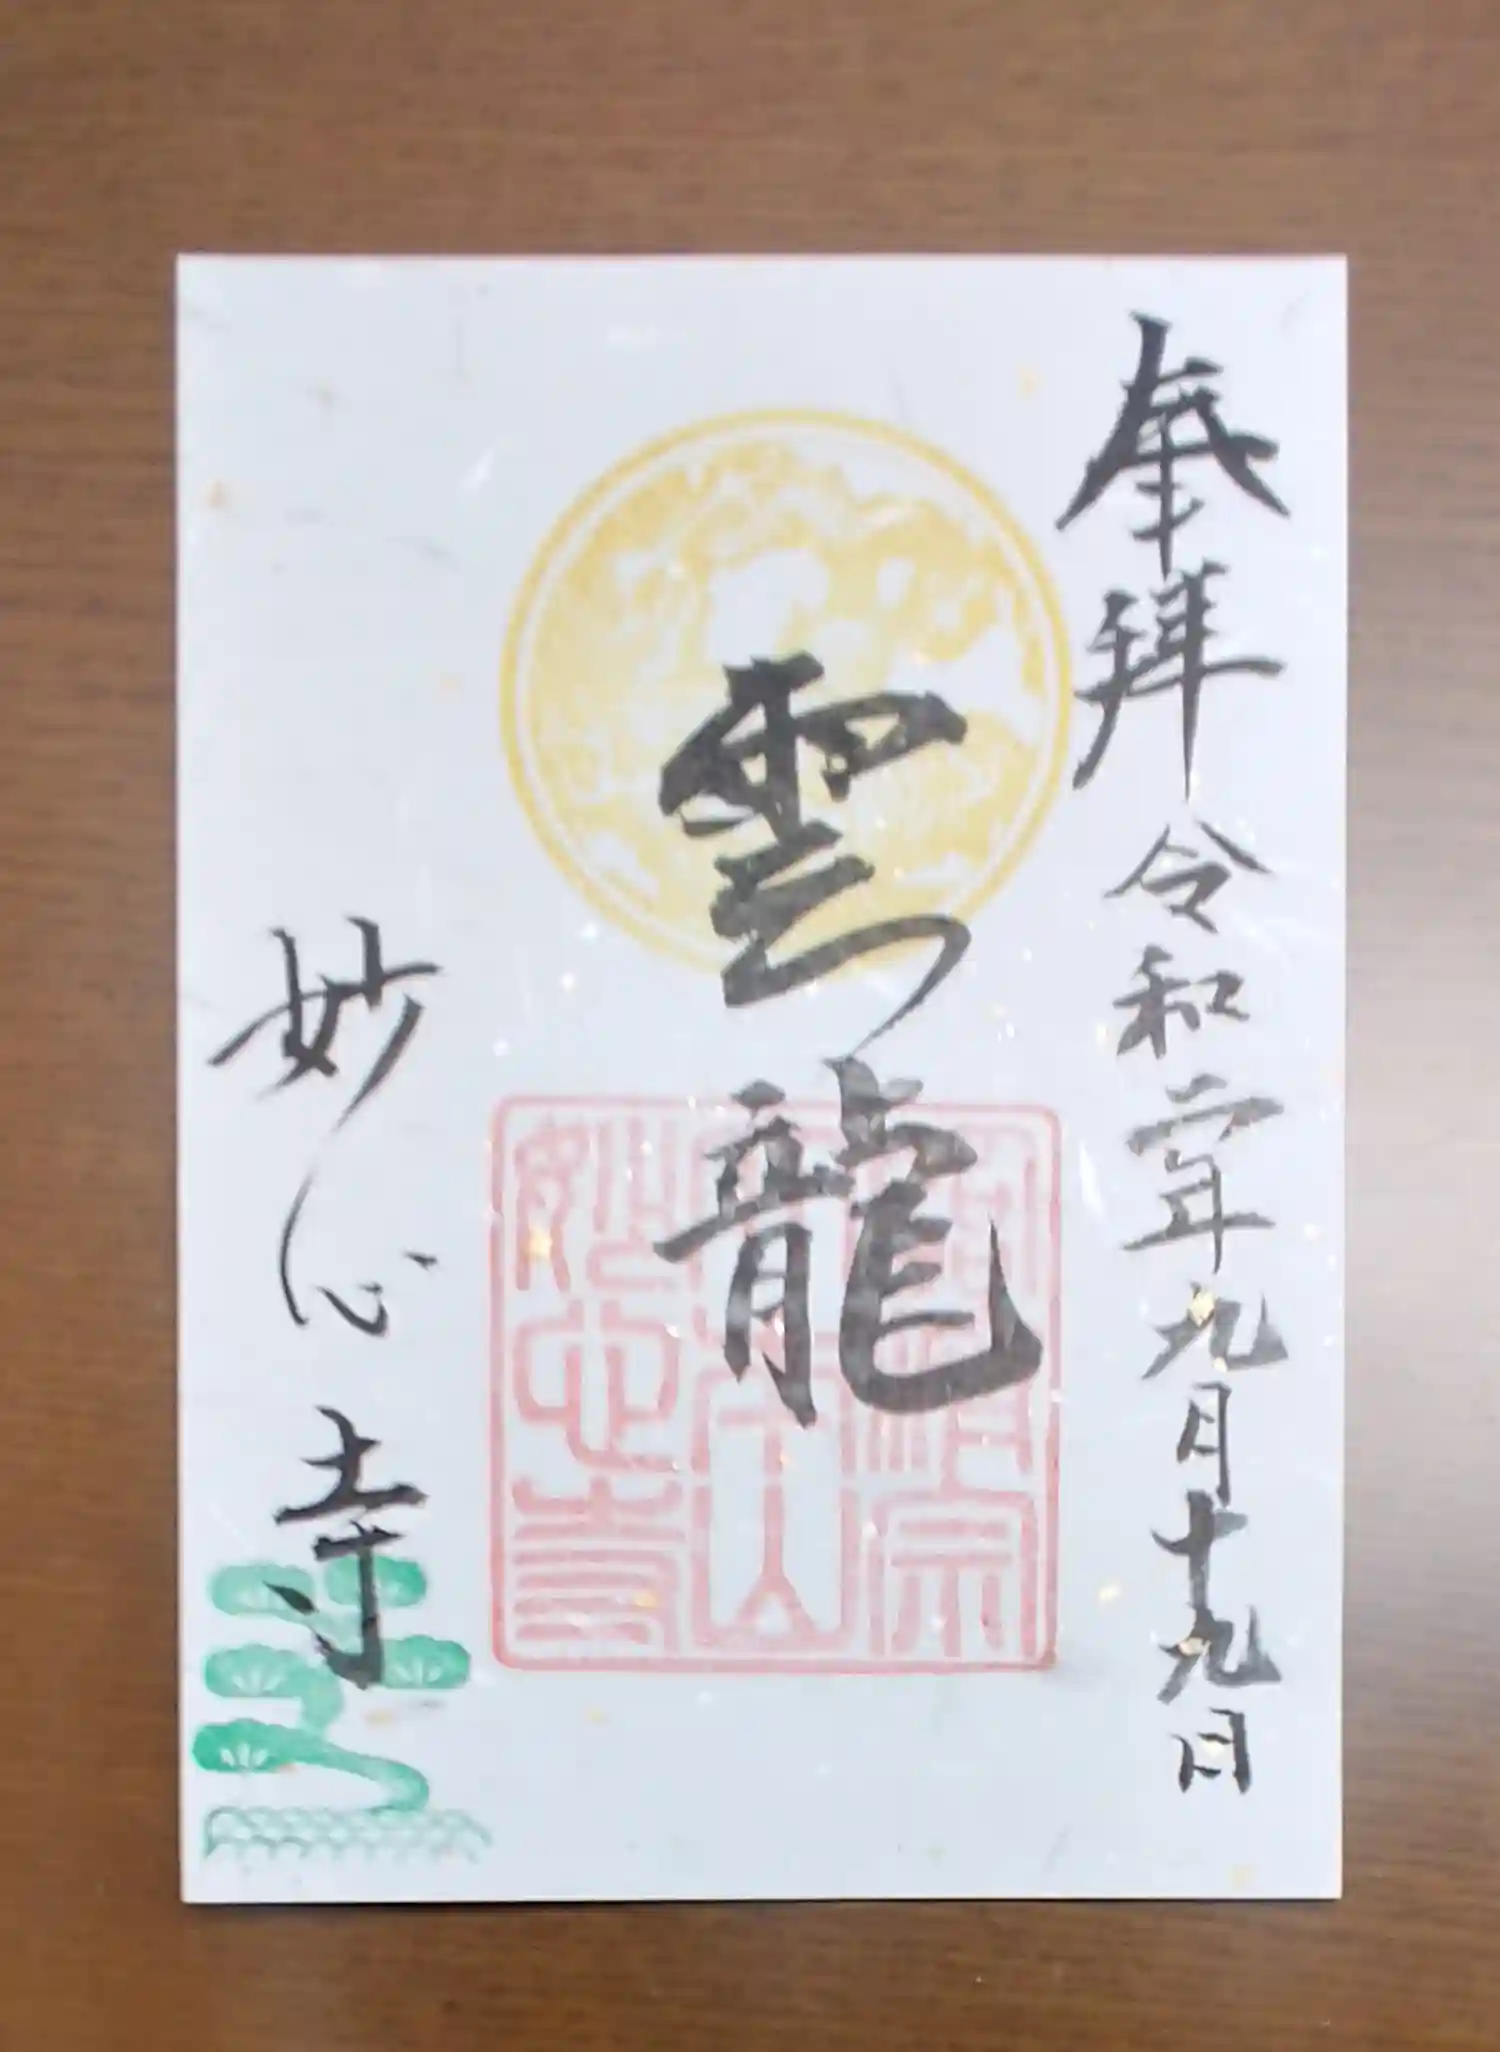 奉拝 令和二年九月十九日
雲龍
妙心寺
臨済宗
大本山
妙心寺